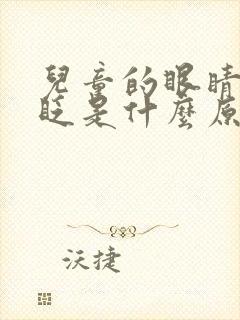 兒童的眼睛
眨是什麼原
沃捷